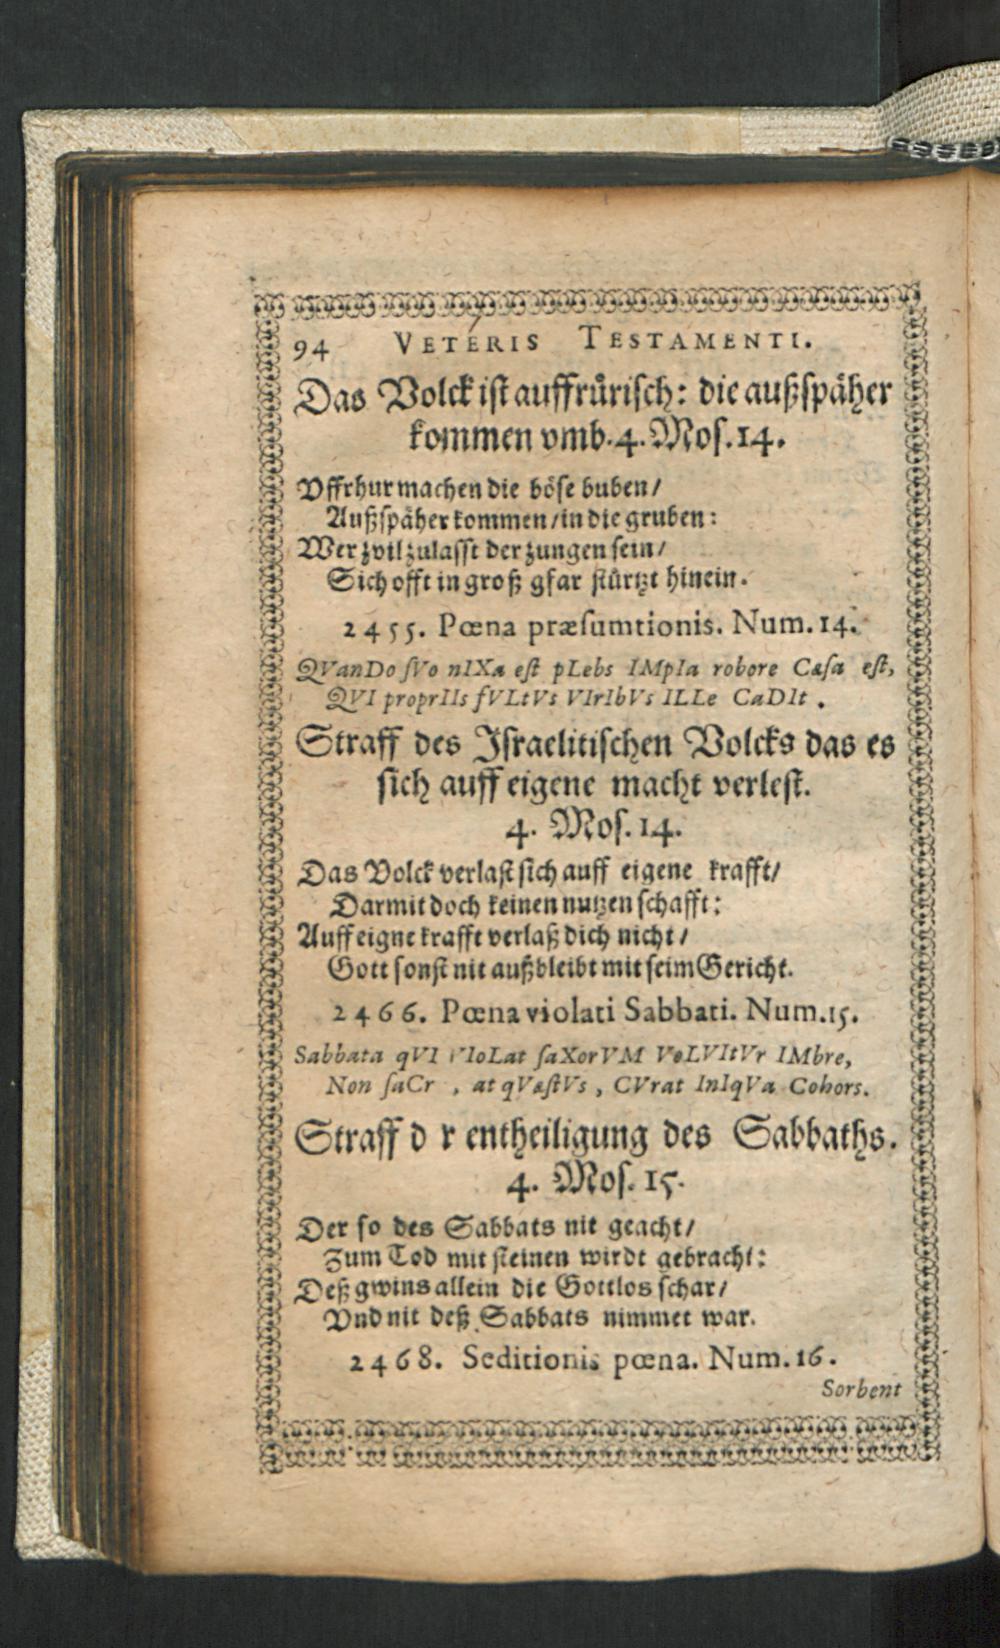 94 VETERIS TESTAMENTI.
Das Volck ist auffrůrisch: die außspåher
kommen vmb. 4. Mos. 14.
Vffrhur machen die böse buben/
Außspåher kommen/in die gruben:
Wer zvil zulasst der zungen sein/
Sich offt in groß gfar stůrtzt hinein.
2455. Pœna præsumtionis. Num. 14.
QVanDo sVo nIXa est pLebs IMpIa robore Cæsa est,
QVI proprIIs fVLtVs VIrIbVs ILLe CaDIt.
Straff des Israelitischen Volcks das es
sich auff eigene macht verlest.
4. Mos. 14.
Das Volck verlast sich auff eigene krafft/
Darmit doch keinen nutzen schafft:
Auff eigne krafft verlaß dich nicht/
Gott sonst nit außbleibt mit seim Gericht.
2466. Pœna violati Sabbati. Num. 15.
Sabbata qVI VIoLat saXorVM VoLVItVr IMbre,
Non saCr , at qVæstVs, CVrat InIqVa Cohors.
Straff d r entheiligung des Sabbaths.
4. Mos. 15.
Der so des Sabbats nit geacht/
Zum Tod mit steinen wirdt gebracht:
Deß gwins allein die Gottlos schar/
Vnd nit deß Sabbats nimmet war.
2468. Seditionis pœna. Num. 16.
Sorbent